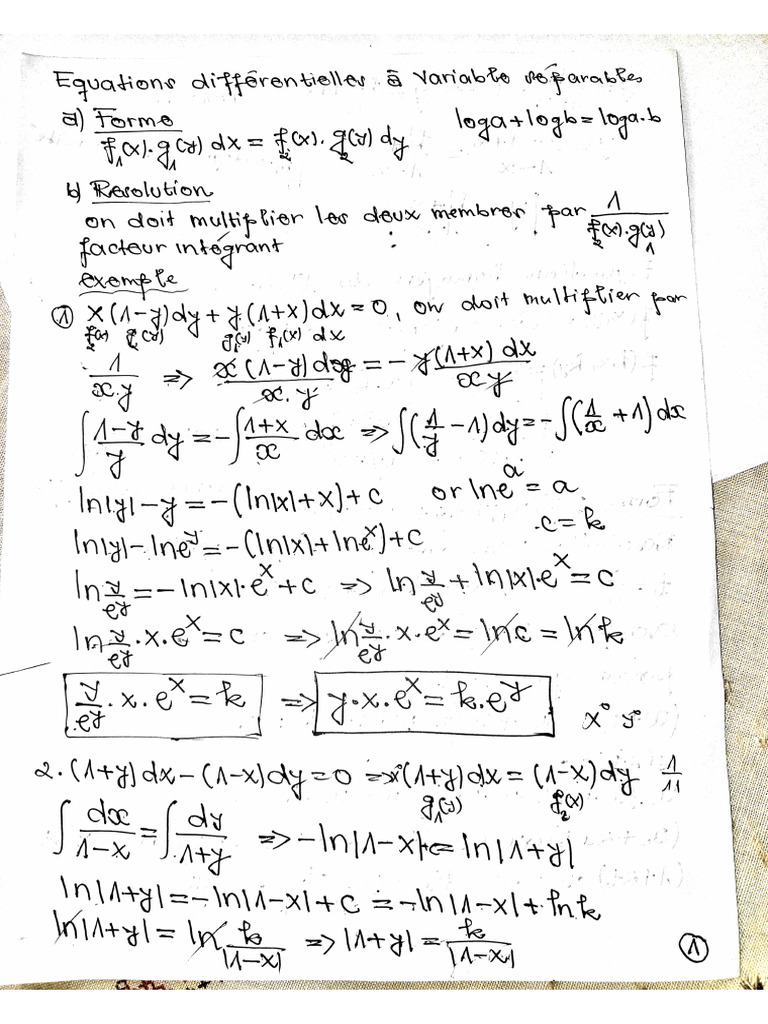 Equations différentielles à variable séparables
a) Forme
loga+logb=loga.b
f₁(x).g₁(y) dx = f₂(x). g₂(y) dy
b) Resolution
on doit multiplier les deux membres par 1/(f₂(x).g₁(y))
facteur intégrant
exemple
① x(1-y)dy+y(1+x)dx=0, on doit multiplier par
f₂(x) g₂(y) g₁(y) f₁(x) dx
1/(x.y) => x(1-y)dy/(x.y) = -y(1+x) dx/(xy)
∫(1-y)/y dy = -∫(1+x)/x dx => ∫(1/y - 1)dy = -∫(1/x + 1)dx
ln|y|-y = -(ln|x|+x)+c or lneᵃ = a
.c=k
ln|y|-lneʸ = -(ln|x|+lneˣ)+c
ln y/eʸ = -ln|x|.eˣ+c => ln y/eʸ + ln|x|.eˣ = c
ln y/eʸ . x.eˣ = c => ln y/eʸ . x.eˣ = lnc = lnk
y/eʸ . x.eˣ = k => y.x.eˣ = k.eʸ
x° y°
2.(1+y)dx-(1-x)dy=0 => x°(1+y)dx = (1-x)dy 1/11
g₁(y) f₂(x)
∫dx/(1-x) = ∫dy/(1+y) => -ln|1-x|+c = ln|1+y|
ln|1+y| = -ln|1-x|+c = -ln|1-x|+lnk
ln|1+y| = ln k/|1-x| => |1+y| = k/|1-x|
①